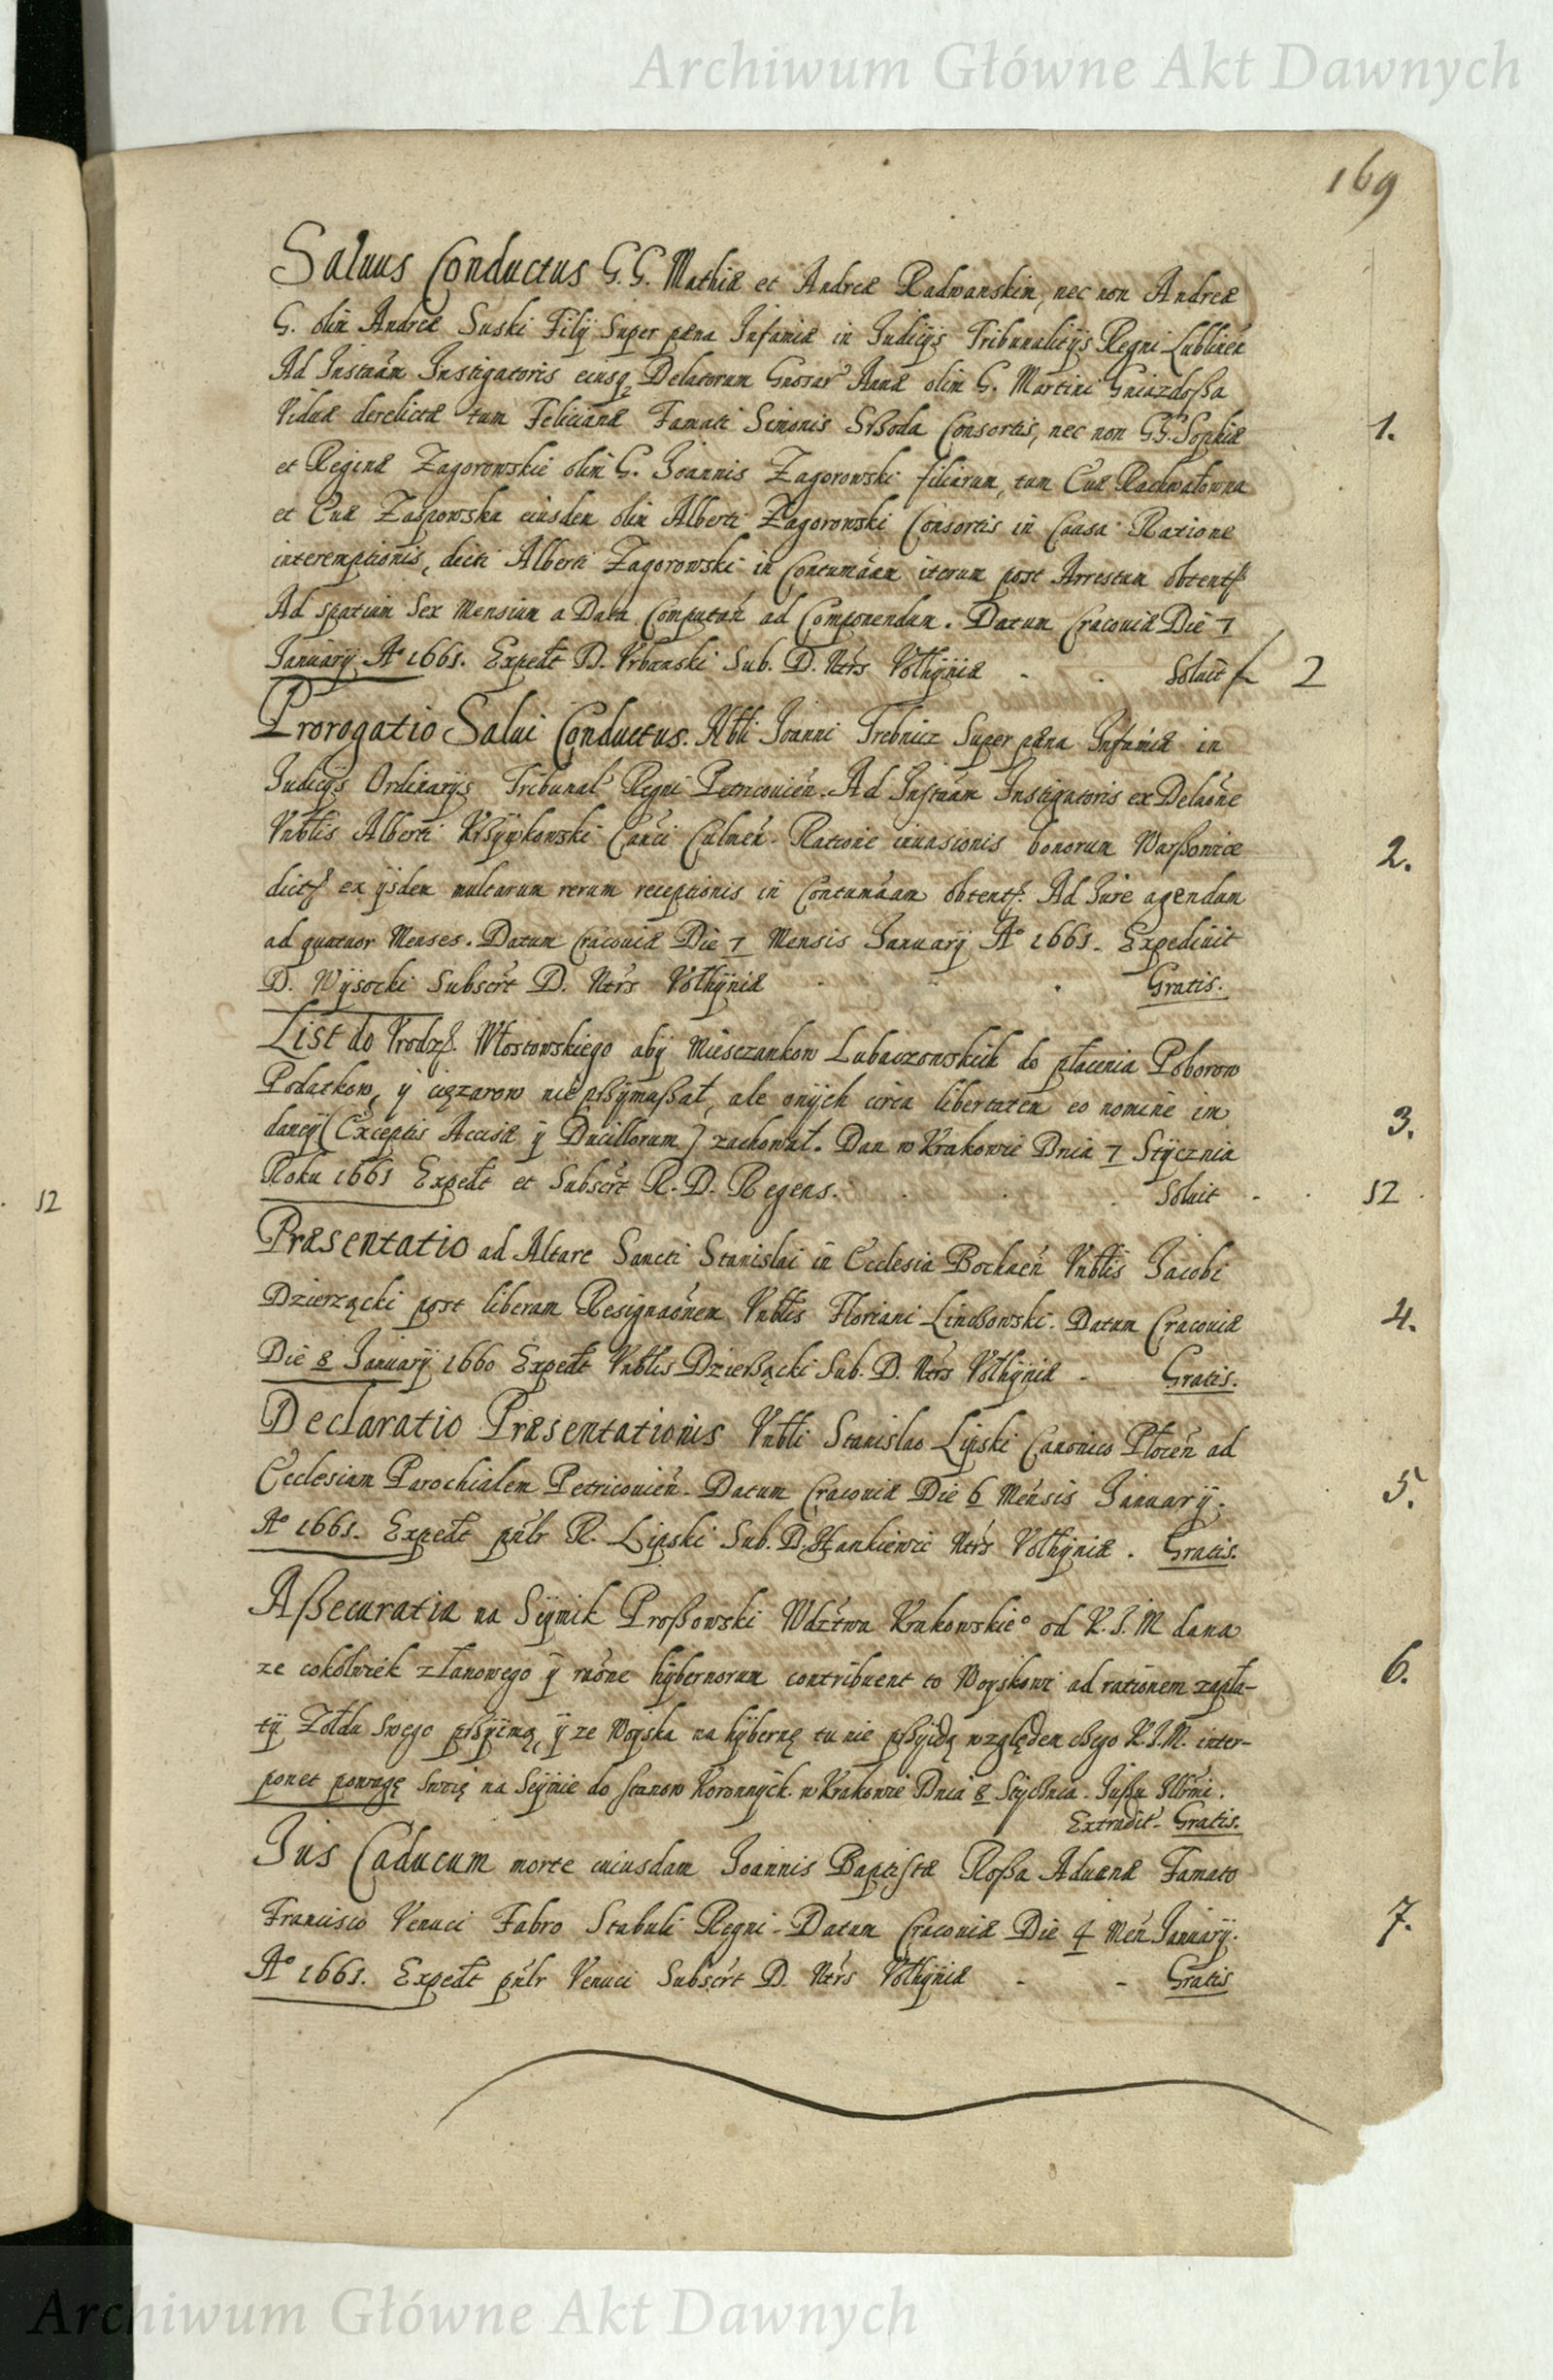 Archiwum Główne Akt Dawnych
169
Saluus Conductus G. G. Mathiæ et Andreæ Radwanskim, nec non Andreæ
G. olim Andreæ Suski Filij Super pæna Infamiæ in Iudicijs Tribunalitijs Regni Lublinen̄
Ad Instām Instigatoris eiusq₃ Delatorum Gnosar̄ Annæ olim G. Martini Gniazdoßa
Viduæ derelictæ tum Felicianæ Famati Simonis Consortis, nec non GG. Sophiæ 1.
et Reginæ Zagorowskie olim G. Ioannis Zagorowski filiarum, tum Euæ Rachwałowna
et Euæ Zaspowska eiusdem olim Alberti Zagorowski Consortis in Causa Ratione
interemptionis, dicti Alberti Zagorowski in Contumām iterum post Arrestum obtent
Ad spatium Sex Mensium a Data Computań ad Componendum. Datum Cracouiæ Die 7
Ianuarij A° 1661. Expedt D. Vrbanski Sub. D. Ntrs Vołhyniæ - - Soluit f 2
Prorogatio Salui Conductus. Nbli Ioanni Trebnicz Super pæna Infamiæ in
Iudicijs Ordinarijs Tribunal Regni Petricouień. Ad Instām Instigatoris ex Delaōne
Vnblis Alberti Canci Culmeń. Ratione inuasionis bonorum Warßowice 2.
dict ex ijsdem multarum rerum receptionis in Contumāam obtent. Ad Iure agendum
ad quatuor Menses. Datum Cracouiæ Die 7 Mensis Ianuarij A° 1661. Expediuit
D. Wysocki Subscrt D. Ntrs Vołhyniæ Gratis.
List do Vrodz. Włostowskiego aby Miesczankow Lubaczowskich do płacenia Poborow
Podatkow, y cięzarow nie pßymußał, ale onych circa libertatem eo nomine im
dancy (Exceptis Accisæ y Ducillorum) zachował. Dan w Krakowie Dnia 7 Stycznia 3.
Roku 1661 Expedt et Subscrt R. D. Regens. Soluit - 12
12
Præsentatio ad Altare Sancti Stanislai in Ecclesia Bochneń Vnblis Iacobi
Dzierzącki post liberam Resignaōnem Vnblis Floriani Linchowski. Datum Cracouiæ 4.
Die 8 Ianuarij 1660 Expedt Vnblis Dzierßącki Sub. D. Ntrs Vołhyniæ - Gratis.
Declaratio Præsentationis Vnbli Stanislao Lipski Canonico Płoceń ad
Ecclesiam Parochialem Petricouień. Datum Cracouiæ Die 6 Mensis Ianuarij. 5.
A° 1661. Expedt pnlr R. Lipski Sub. D. Hankiewic Ntrs Vołhyniæ. Gratis.
Aßecuratia na Seymik Proßowski Wdztwa Krakowskie° od K. I. M dana
ze cokolwiek złanowego y raōne hybernorum contribuent to Woyskowi ad rationem zapła- 6.
ty Zołdu Swego pßyimą, y ze Woyska na hybernę tu nie pßyidą względem czego K. I. M. inter-
ponet powagę Swoię na Seymie do stanow Koronnych. w Krakowie Dnia 8 Stycznia. Iußu Illmi.
Extradit. Gratis.
Ius Caducum morte cuiusdam Ioannis Baptistæ Roßa Aduenæ Famato
Francisco Venuci Fabro Stabuli Regni. Datum Cracouiæ Die 4 Meń Ianuarij. 7.
A° 1661. Expedt pnlr Venuci Subscrt D. Ntrs Vołhyniæ - - Gratis
Archiwum Główne Akt Dawnych